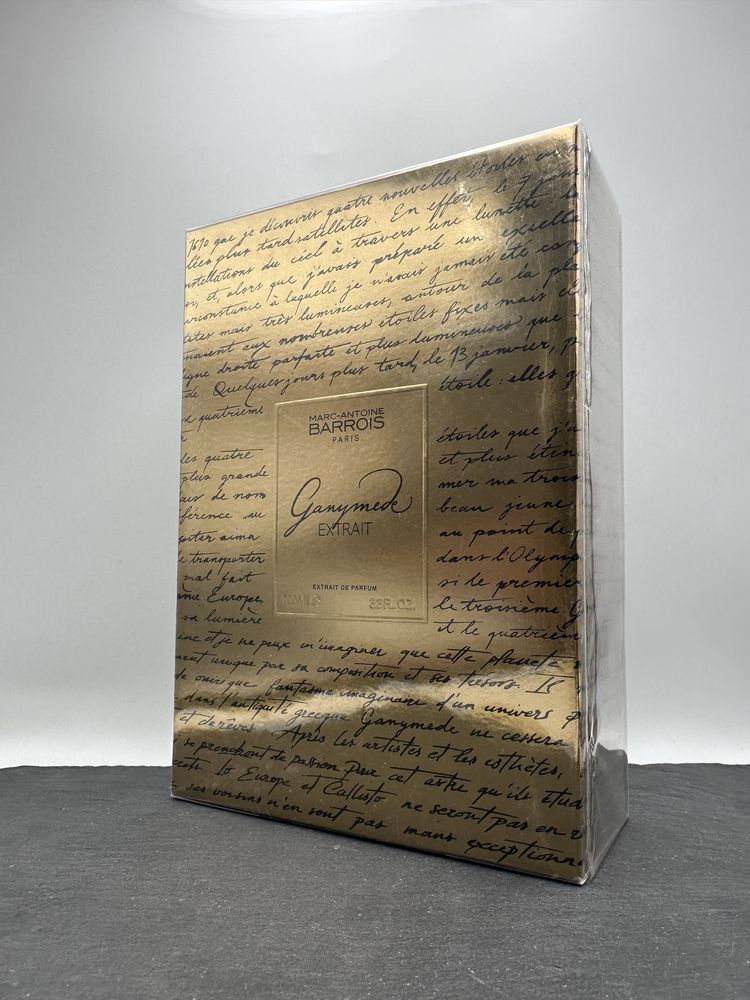 1610 que je découvris quatre nouvelles étoiles en
plus tard satellites. En effet, le 7
constellations du ciel à travers une lunette
et, alors que j'avais préparé un
circonstance à laquelle je n'avais jamais été
mais très lumineuses, autour de la
aux nombreuses étoiles fixes mais
ligne droite parfaite et plus lumineuses que
de Quelques jours plus tard, le 13 janvier, p
quatrième
étoile : elles q
MARC-ANTOINE
BARROIS
PARIS
Ganymede
EXTRAIT
EXTRAIT DE PARFUM
100ML℮ 3.3FL.OZ.
les quatre
plus grande
de nom
férence au
piter aima
transporter
mal fait
Europe,
sa lumière
étoiles que j'a
et plus
mer ma
beau jeune
au point de
dans l'Olymp
si le premie
le troisième G
et le quatrièm
et je ne peux m'imaginer que cette planète
unique par sa composition et ses trésors. Il
onirique fantasme imaginaire d'un univers
dans l'antiquité grecque Ganymede ne cessera
et de rêves. Après les artistes et les esthètes,
se prenchont de passion pour cet astre qu'ils étud
Io Europe et Callisto ne seront pas en
ses voisins n'en sont pas moins exceptionn